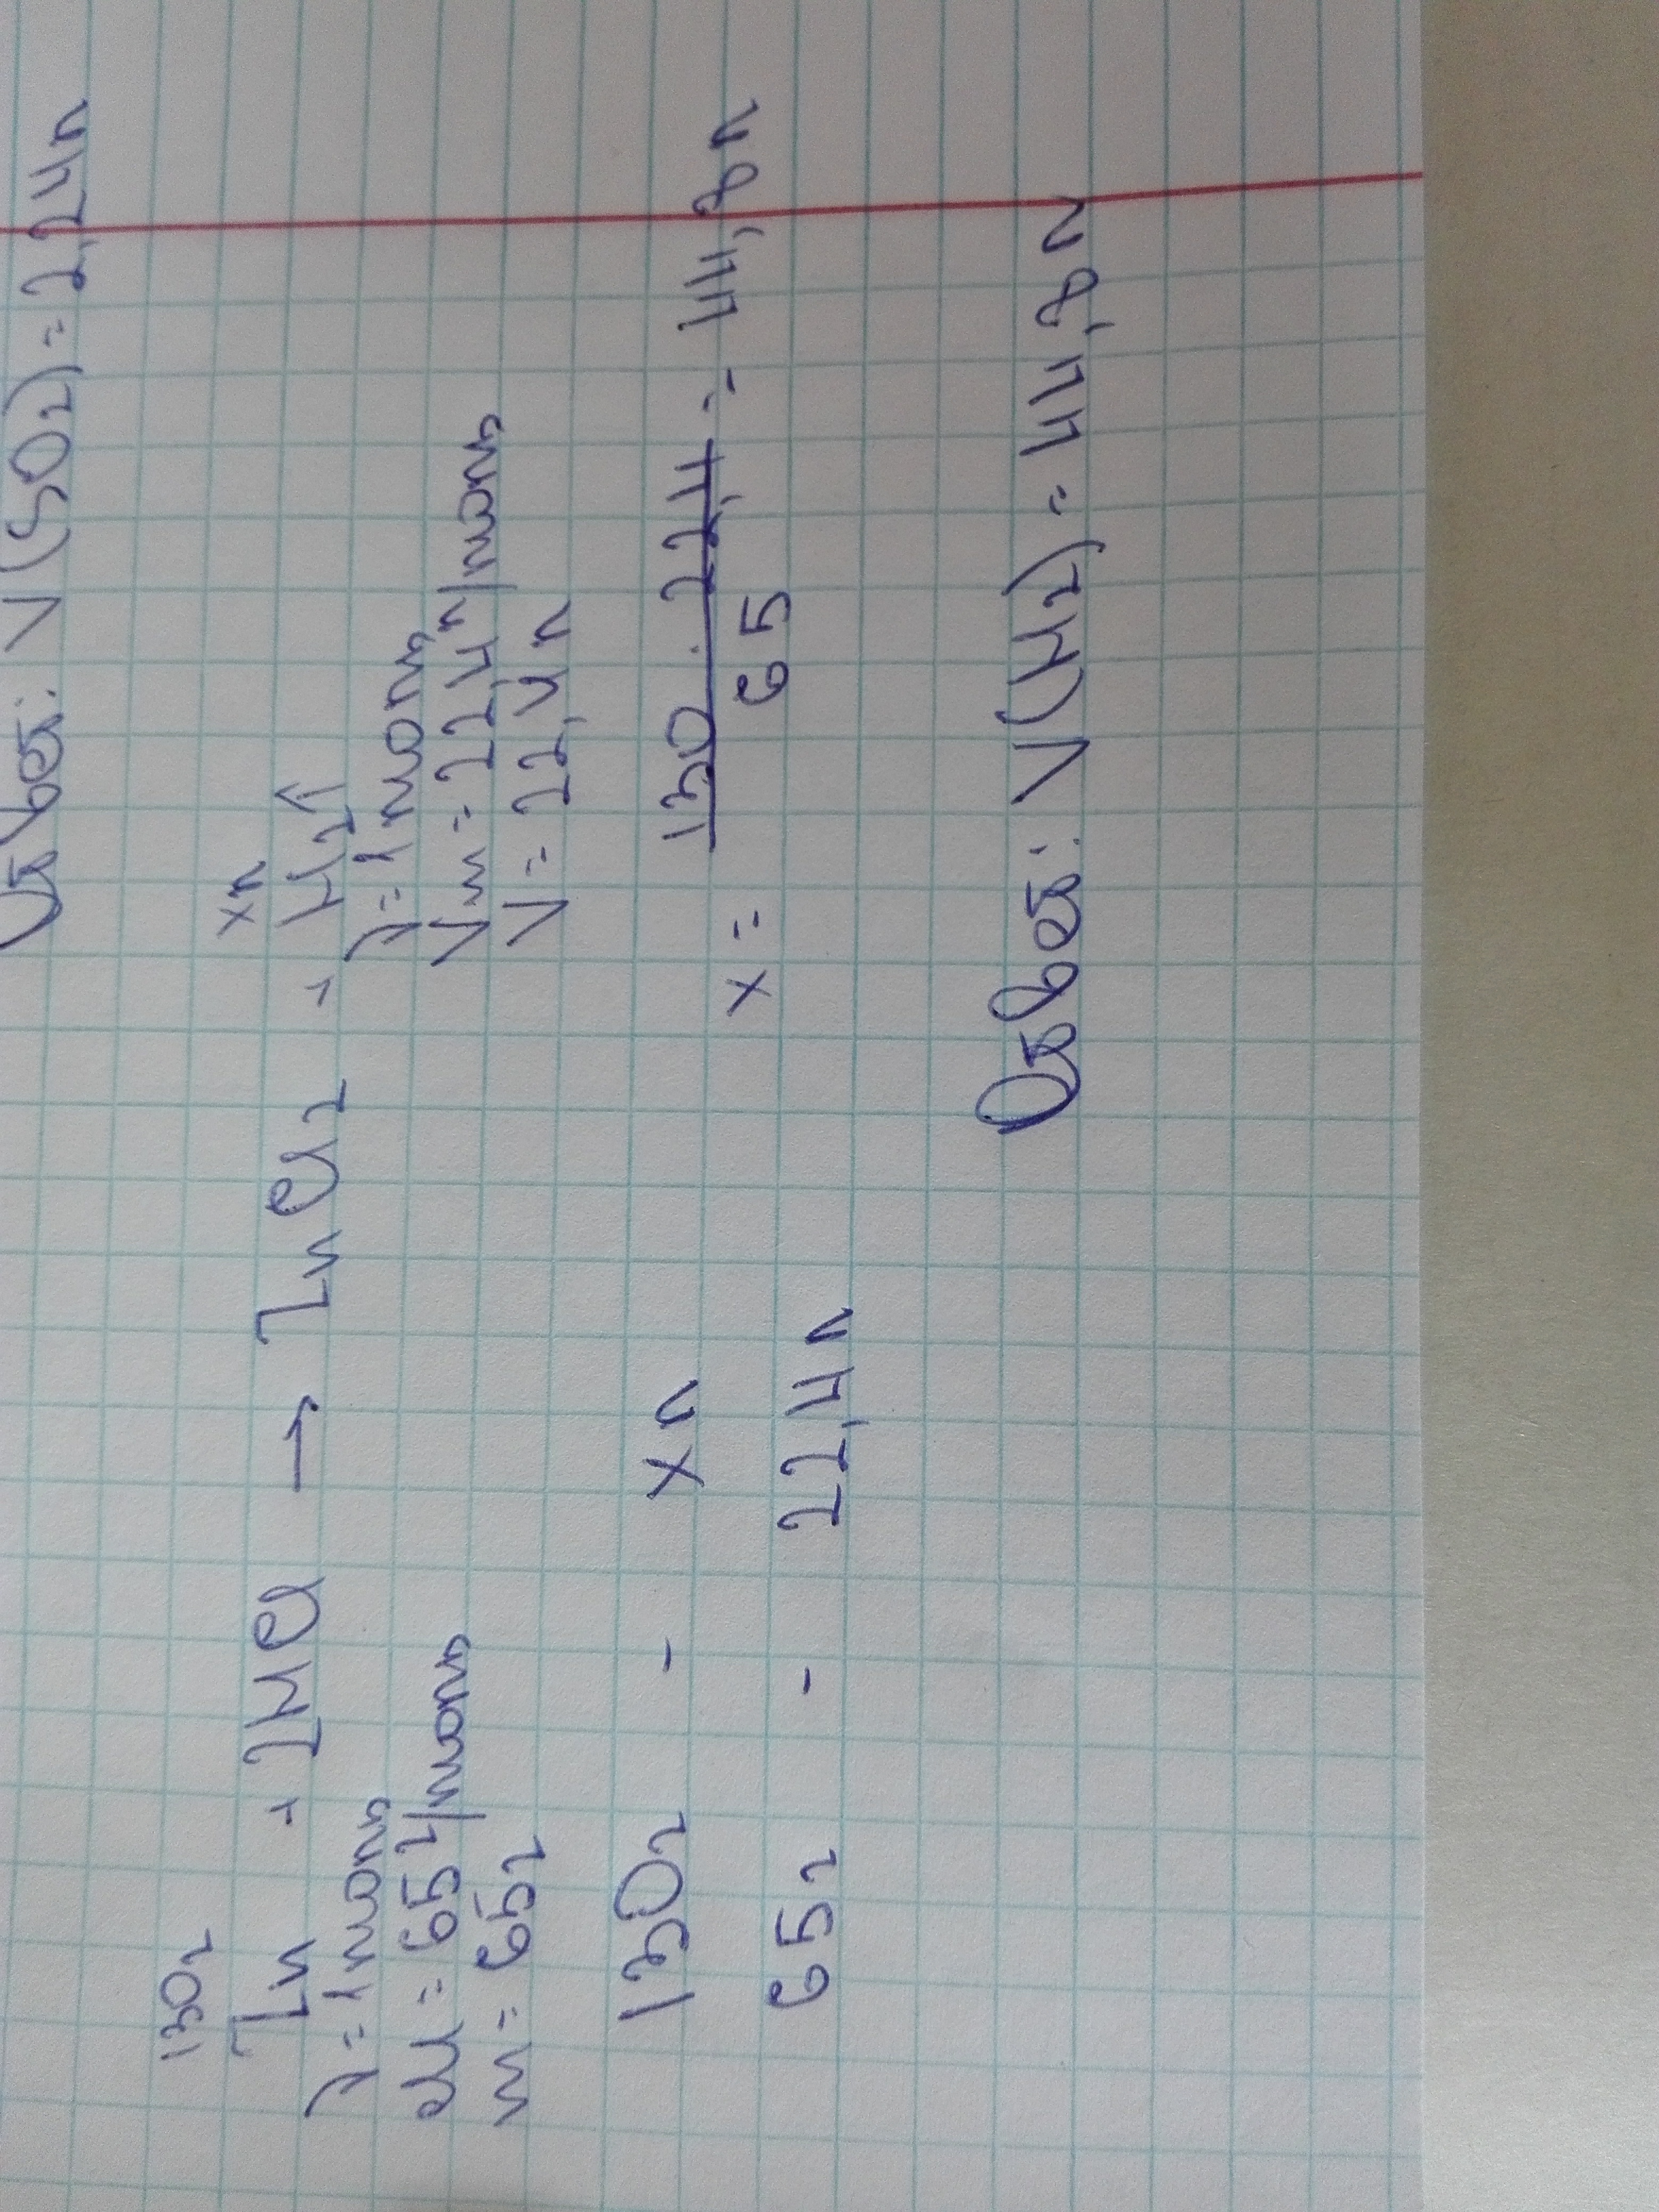 Ответ: V(SO2) = 2,24л
130г xл
Zn + 2HCl → ZnCl2 + H2↑
λ = 1моль λ = 1моль
M = 65 г/моль Vm = 22,4 л/моль
m = 65г V = 22,4 л
130г - xл
65г - 22,4л
x = 130 · 22,4 / 65 = 44,8л
Ответ: V(H2) = 44,8л